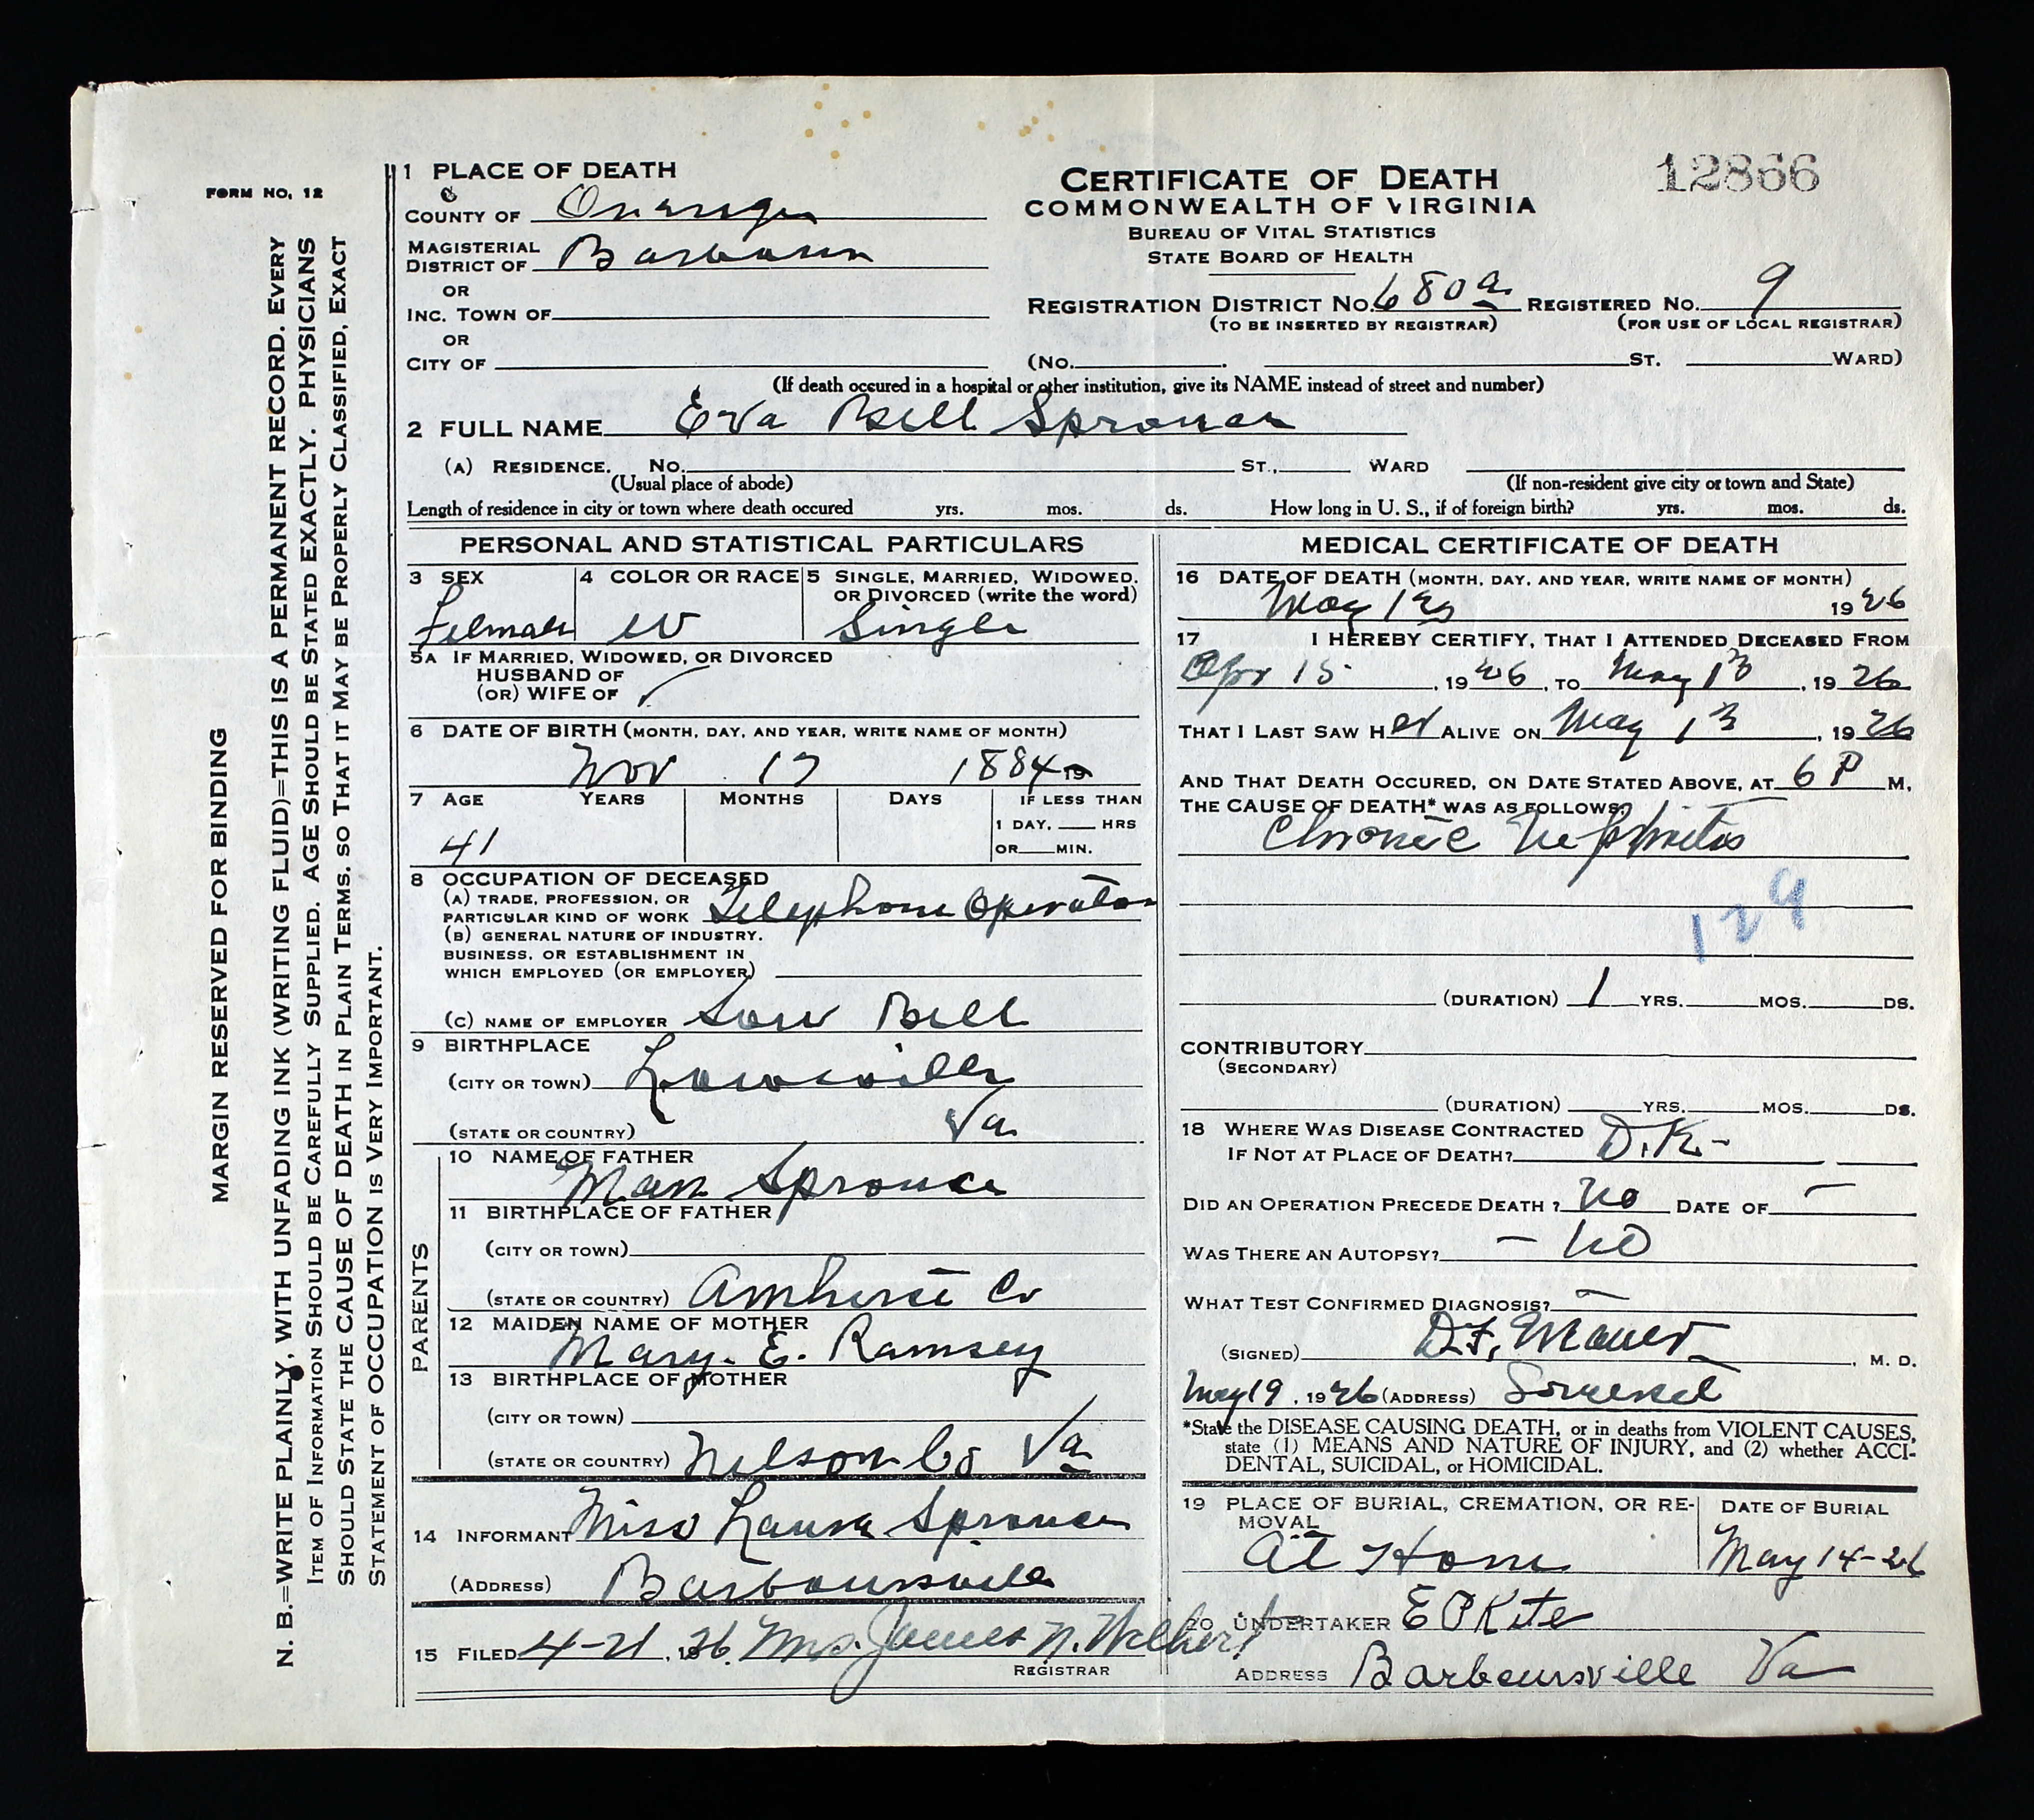 12866
FORM NO. 12
MARGIN RESERVED FOR BINDING
N. B.=WRITE PLAINLY, WITH UNFADING INK (WRITING FLUID)=THIS IS A PERMANENT RECORD. EVERY
ITEM OF INFORMATION SHOULD BE CAREFULLY SUPPLIED. AGE SHOULD BE STATED EXACTLY. PHYSICIANS
SHOULD STATE THE CAUSE OF DEATH IN PLAIN TERMS, SO THAT IT MAY BE PROPERLY CLASSIFIED, EXACT
STATEMENT OF OCCUPATION IS VERY IMPORTANT.
1 PLACE OF DEATH
COUNTY OF Orange
MAGISTERIAL
DISTRICT OF Barbour
OR
INC. TOWN OF
OR
CITY OF
CERTIFICATE OF DEATH
COMMONWEALTH OF VIRGINIA
BUREAU OF VITAL STATISTICS
STATE BOARD OF HEALTH
REGISTRATION DISTRICT NO. 680a REGISTERED NO. 9
(TO BE INSERTED BY REGISTRAR) (FOR USE OF LOCAL REGISTRAR)
(NO. ST. WARD)
(If death occured in a hospital or other institution, give its NAME instead of street and number)
2 FULL NAME Eva Bell Sprouce
(A) RESIDENCE. NO. ST., WARD
(Usual place of abode) (If non-resident give city or town and State)
Length of residence in city or town where death occured yrs. mos. ds. How long in U. S., if of foreign birth? yrs. mos. ds.
PERSONAL AND STATISTICAL PARTICULARS
3 SEX 4 COLOR OR RACE 5 SINGLE, MARRIED, WIDOWED,
OR DIVORCED (write the word)
Felmale W Single
5A IF MARRIED, WIDOWED, OR DIVORCED
HUSBAND OF
(OR) WIFE OF
6 DATE OF BIRTH (MONTH, DAY, AND YEAR, WRITE NAME OF MONTH)
Nov 17 1884 19
7 AGE YEARS MONTHS DAYS IF LESS THAN
1 DAY, HRS
41 OR MIN.
8 OCCUPATION OF DECEASED
(A) TRADE, PROFESSION, OR
PARTICULAR KIND OF WORK Telephone Operator
(B) GENERAL NATURE OF INDUSTRY,
BUSINESS, OR ESTABLISHMENT IN
WHICH EMPLOYED (OR EMPLOYER)
(C) NAME OF EMPLOYER Sou Bell
9 BIRTHPLACE
(CITY OR TOWN) Lowesville
(STATE OR COUNTRY) Va
PARENTS
10 NAME OF FATHER
Man Sprouce
11 BIRTHPLACE OF FATHER
(CITY OR TOWN)
(STATE OR COUNTRY) Amherst Co
12 MAIDEN NAME OF MOTHER
Mary. E. Ramsey
13 BIRTHPLACE OF MOTHER
(CITY OR TOWN)
(STATE OR COUNTRY) Nelson Co Va
14 INFORMANT Miss Laura Sprouce
(ADDRESS) Barboursville
15 FILED 4-21, 1926. Mrs. James N.
REGISTRAR
MEDICAL CERTIFICATE OF DEATH
16 DATE OF DEATH (MONTH, DAY, AND YEAR, WRITE NAME OF MONTH)
May 13 1926
17 I HEREBY CERTIFY, THAT I ATTENDED DECEASED FROM
Apr 15 , 1926, TO May 13, 1926
THAT I LAST SAW HER ALIVE ON May 13, 1926
AND THAT DEATH OCCURED, ON DATE STATED ABOVE, AT 6 P M.
THE CAUSE OF DEATH* WAS AS FOLLOWS:
Chronic Nephritis
129
(DURATION) 1 YRS. MOS. DS.
CONTRIBUTORY
(SECONDARY)
(DURATION) YRS. MOS. DS.
18 WHERE WAS DISEASE CONTRACTED
IF NOT AT PLACE OF DEATH? D.K-
DID AN OPERATION PRECEDE DEATH? No DATE OF -
WAS THERE AN AUTOPSY? - No
WHAT TEST CONFIRMED DIAGNOSIS? -
(SIGNED) D.F. , M. D.
May 19, 1926 (ADDRESS) Somerset
*State the DISEASE CAUSING DEATH, or in deaths from VIOLENT CAUSES,
state (1) MEANS AND NATURE OF INJURY, and (2) whether ACCI-
DENTAL, SUICIDAL, or HOMICIDAL.
19 PLACE OF BURIAL, CREMATION, OR RE-
MOVAL DATE OF BURIAL
At Home May 14-26
20 UNDERTAKER E P Kite
ADDRESS Barboursville Va